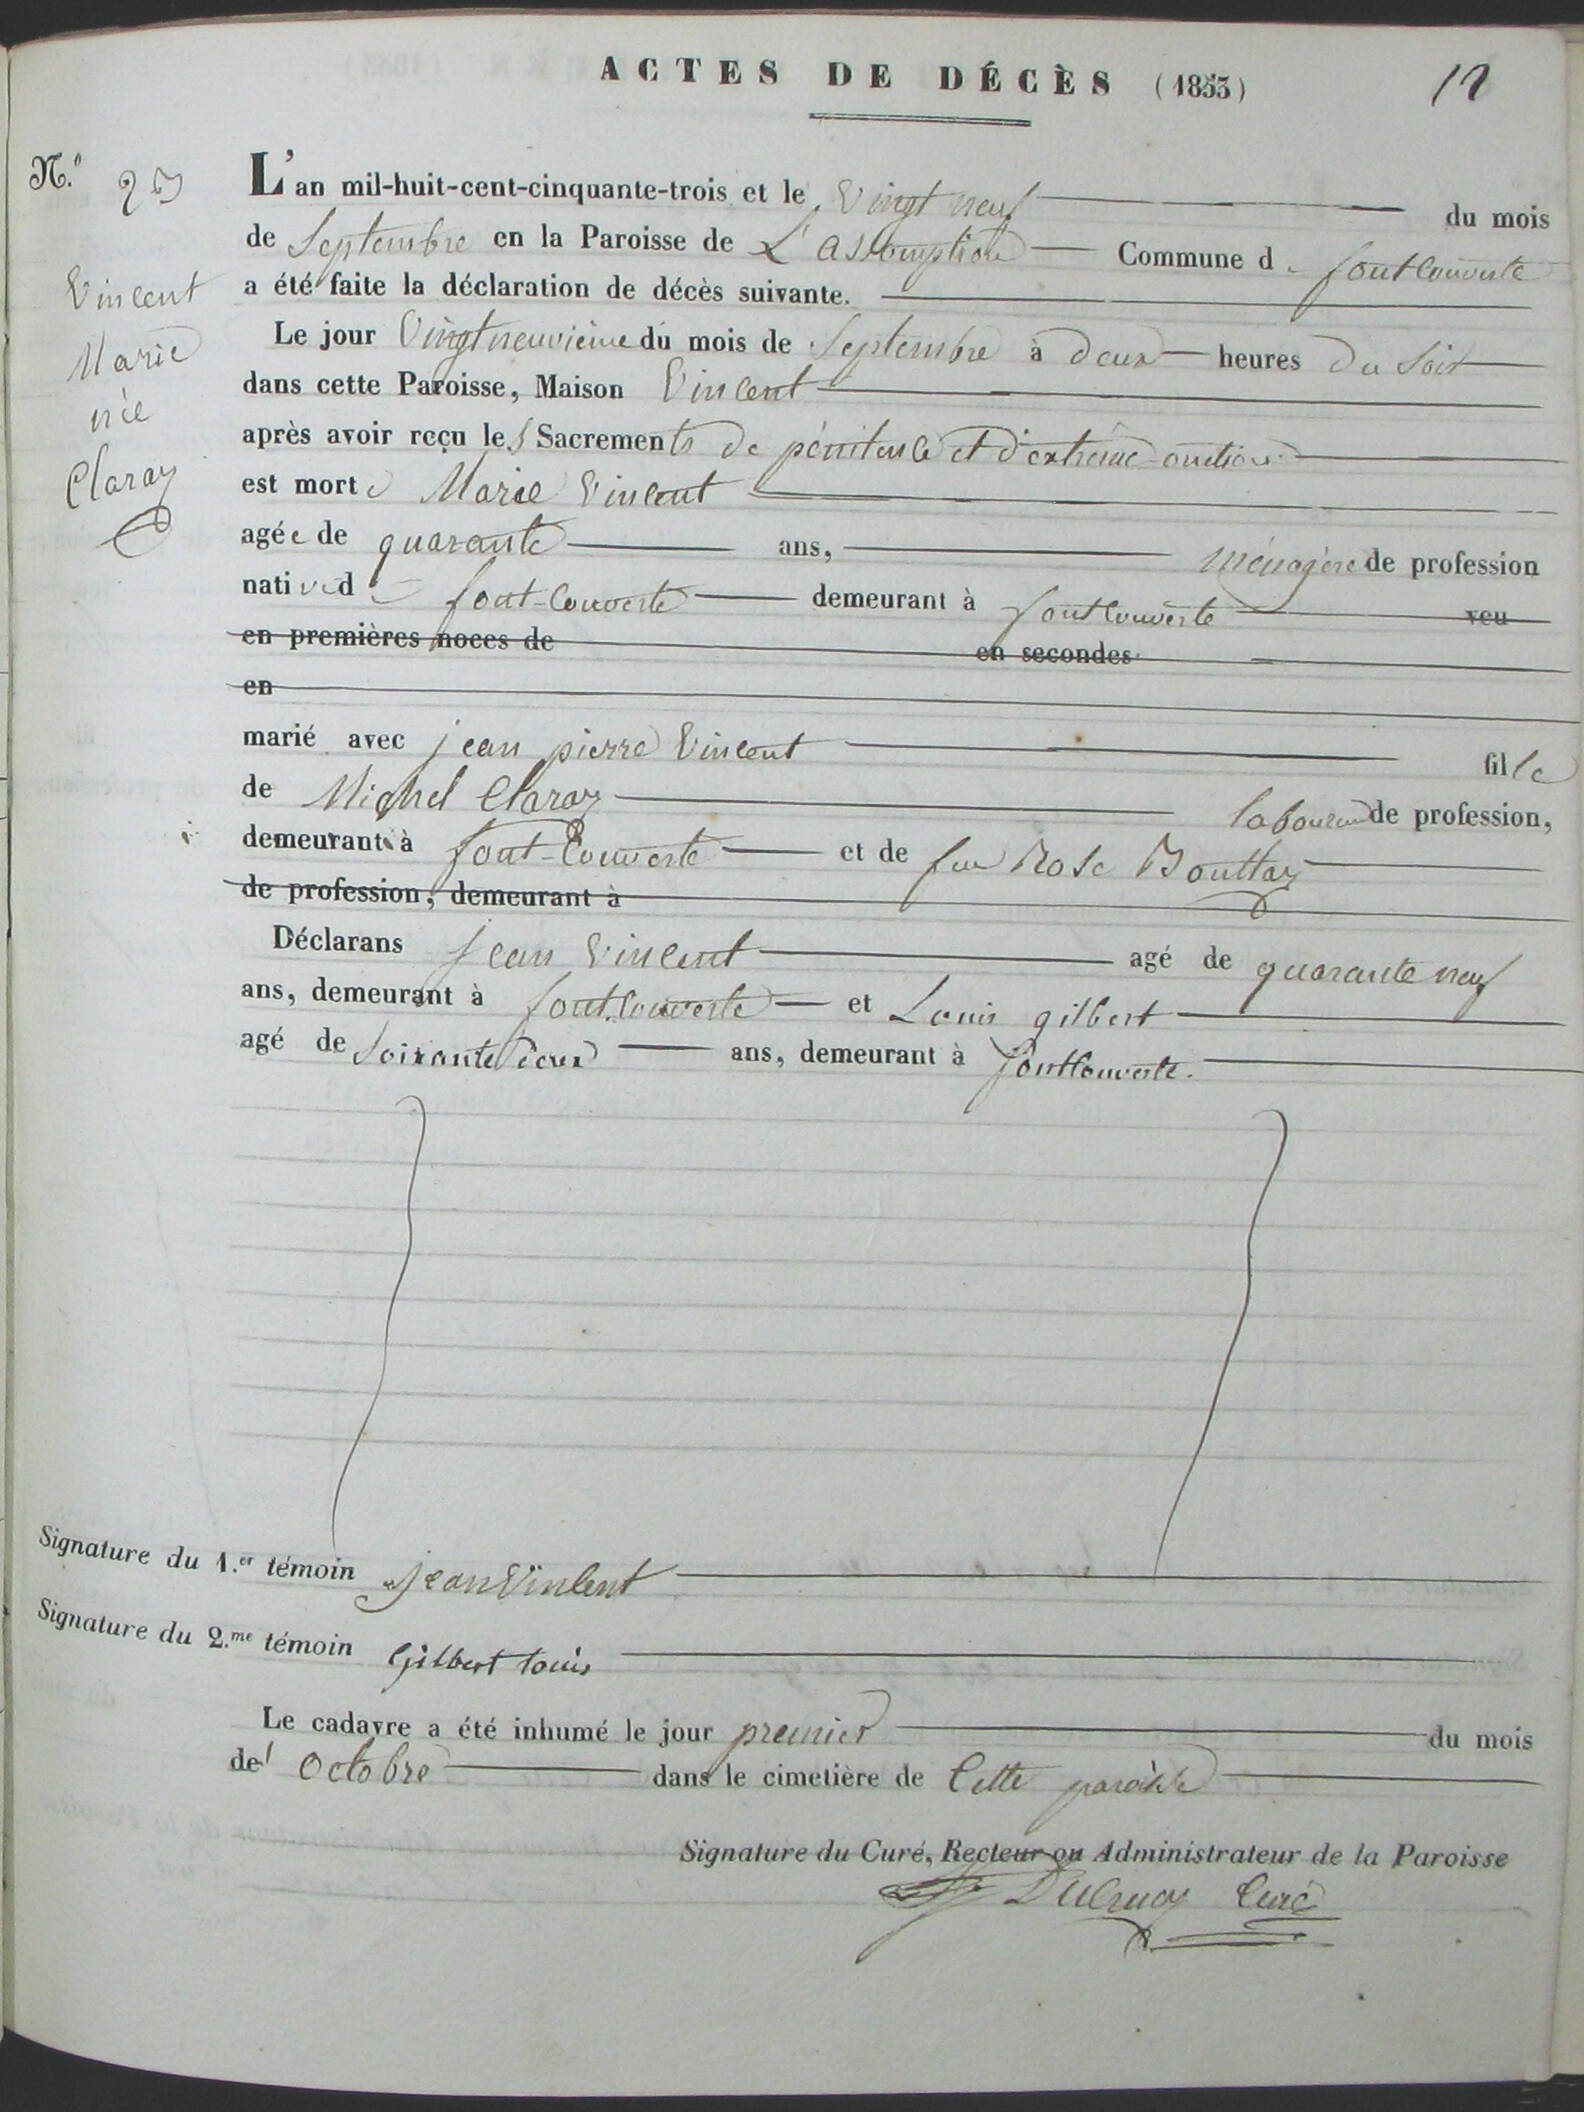 ACTES DE DÉCÈS (1853) 12
N.º 25
L'an mil-huit-cent-cinquante-trois et le Vingt neuf du mois
de Septembre en la Paroisse de L'assomption Commune de fontcouverte
a été faite la déclaration de décès suivante.
Vincent
Marie
née
Claraz
Le jour Vingt neuvième du mois de Septembre à deux heures du Soir
dans cette Paroisse, Maison Vincent
après avoir reçu les Sacrements de pénitence et d'extrême-onction
est morte Marie Vincent
agée de quarante ans, ménagère de profession
native de font-Couverte demeurant à fontcouverte veu
en premières noces de en secondes
en
marié avec jean pierre Vincent fille
de Michel Claraz laboureur de profession,
demeurant à font-Couverte et de feu Rose Bouttaz
de profession, demeurant à
Déclarans jean Vincent agé de quarante neuf
ans, demeurant à fontcouverte et Louis gilbert
agé de Soixante deux ans, demeurant à fontcouverte.
Signature du 1.er témoin jean Vincent
Signature du 2.me témoin Gilbert Louis
Le cadavre a été inhumé le jour premier du mois
de octobre dans le cimetière de Cette paroisse
Signature du Curé, Recteur ou Administrateur de la Paroisse
Curé